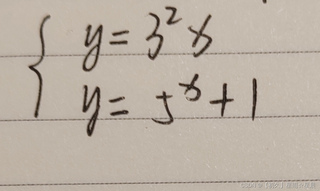 y = 3²x
y = 5ˣ + 1